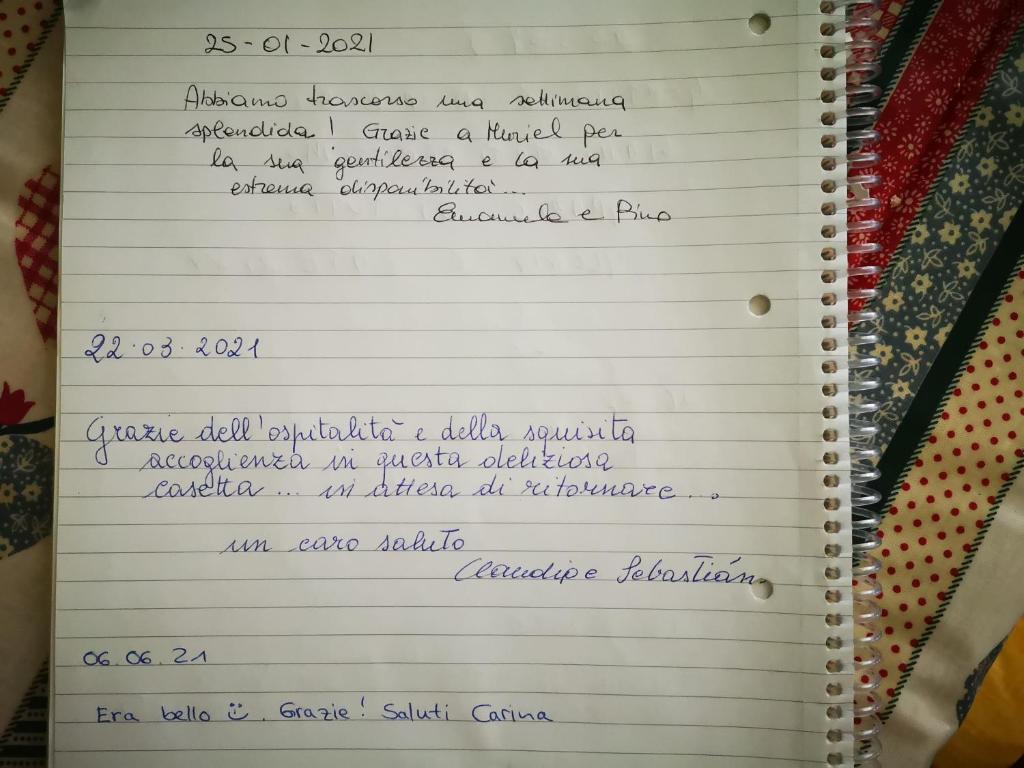 25-01-2021
Abbiamo trascorso una settimana
splendida! Grazie a Muriel per
la sua gentilezza e la sua
estrema disponibilità...
Emanuela e Pino
22.03.2021
Grazie dell'ospitalità e della squisita
accoglienza in questa deliziosa
casetta... in attesa di ritornare...
un caro saluto
Claudio e Sebastián.
06.06.21
Era bello ☺. Grazie! Saluti Carina